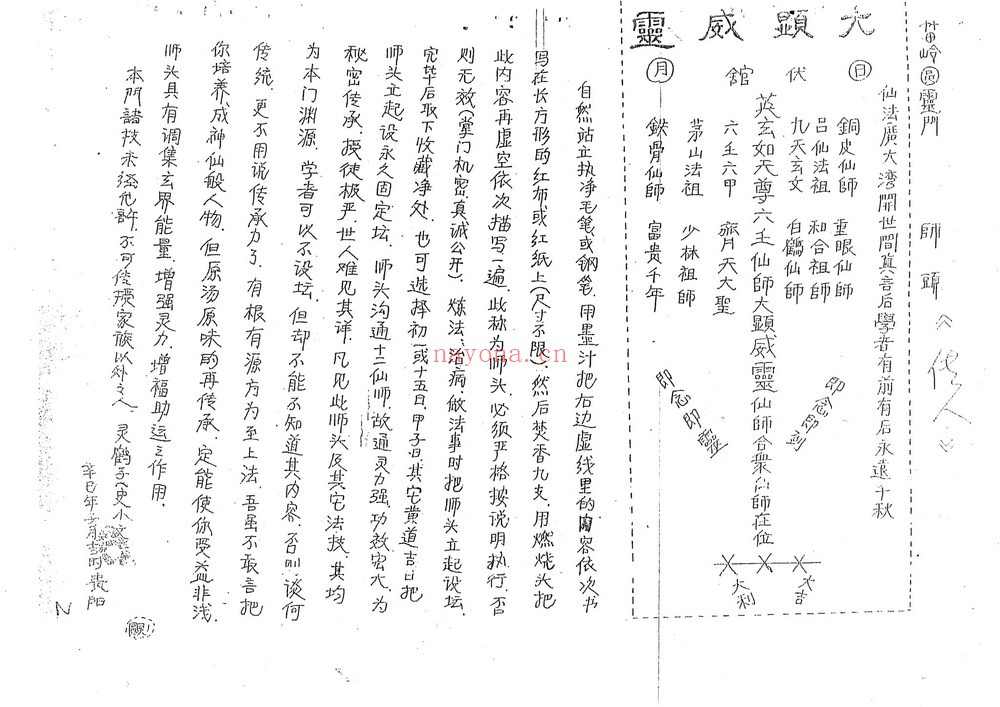 苗岭圆靈門 師頭《传人》
仙法廣大灣開世間真言后學者有前有后永遠千秋
大顯威靈
日 伏館 月
銅皮仙師 重眼仙師
吕仙法祖 和合祖師
九天玄女 白鶴仙師
英玄如天尊六壬仙師大顯威靈仙師合衆仙師在位
六壬六甲 齊天大聖
茅山法祖 少林祖師
鉄骨仙師 富贵千年
即念即到
即念即靈
大吉
大利
自然站立执净毛笔或钢笔,用墨汁把右边虚线里的内容依次书
写在长方形的红布或红纸上(尺寸不限),然后焚香九支,用燃烧头把
此内容再虚空依次描写一遍,此称为师头,必须严格按说明执行,否
则无效(掌门机密,真诚公开).炼法、治病、做法事时把师头立起设坛,
完毕后取下收藏净处.也可选择初一或十五日、甲子日、其它黄道吉日把
师头立起设永久固定坛.师头沟通十二仙师,故通灵力强,功效宏大,为
秘密传承,授徒极严,世人难见其详,凡见此师头及其它法技,其均
为本门渊源.学者可以不设坛,但却不能不知道其内容,否则,谈何
传统,更不用说传承力了.有根有源方为至上法,吾虽不敢言把
你培养成神仙般人物,但原汤原味的再传承,定能使你受益非浅.
师头具有调集玄界能量,增强灵力,增福助运之作用.
本門諸技未经允許,不可传授家族以外之人.灵鶴子(史小
辛巳年 月吉时 贵阳
nayona.cn